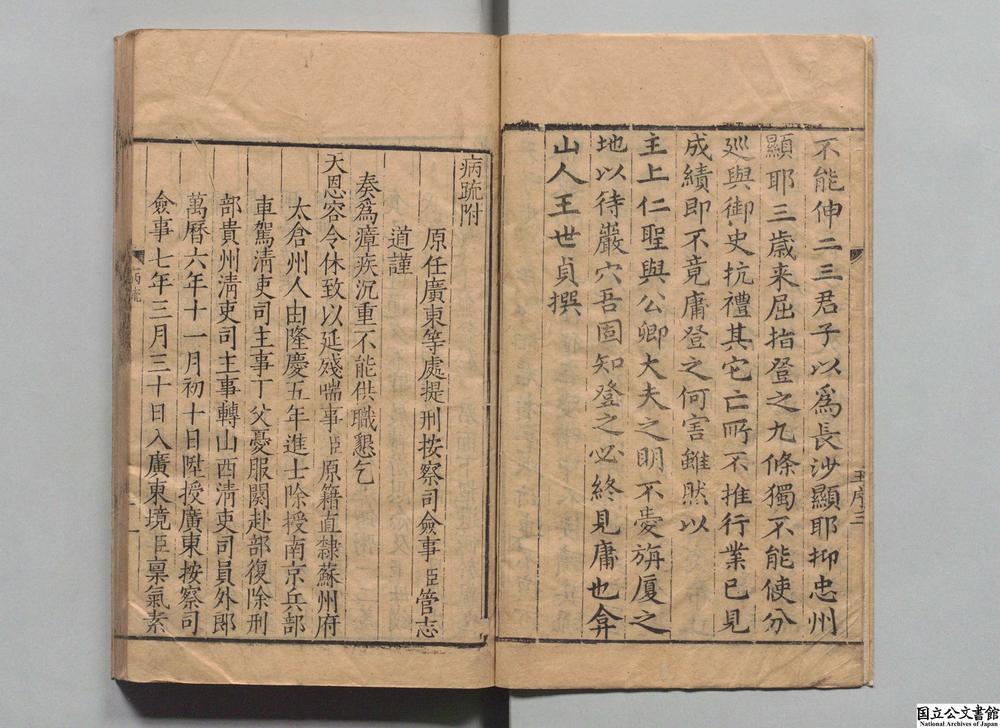 不能伸二三君子以爲長沙顯耶抑忠州
顯耶三歲来屈指登之九條獨不能使分
廵與御史抗禮其它亡所不推行業已見
成績即不竟庸登之何害雖然以
主上仁聖與公卿大夫之明不愛旃厦之
地以待嚴穴吾固知登之必終見庸也弇
山人王世貞撰
王序三
病疏附
原任廣東等處提刑按察司僉事臣管志
道謹
奏爲瘴疾沉重不能供職懇乞
天恩容令休致以延殘喘事臣原籍直隸蘇州府
太倉州人由隆慶五年進士除授南京兵部
車駕清吏司主事丁父憂服闋赴部復除刑
部貴州清吏司主事轉山西清吏司員外郎
萬曆六年十一月初十日陞授廣東按察司
僉事七年三月三十日入廣東境臣稟氣素
病疏
一
国立公文書館
National Archives of Japan